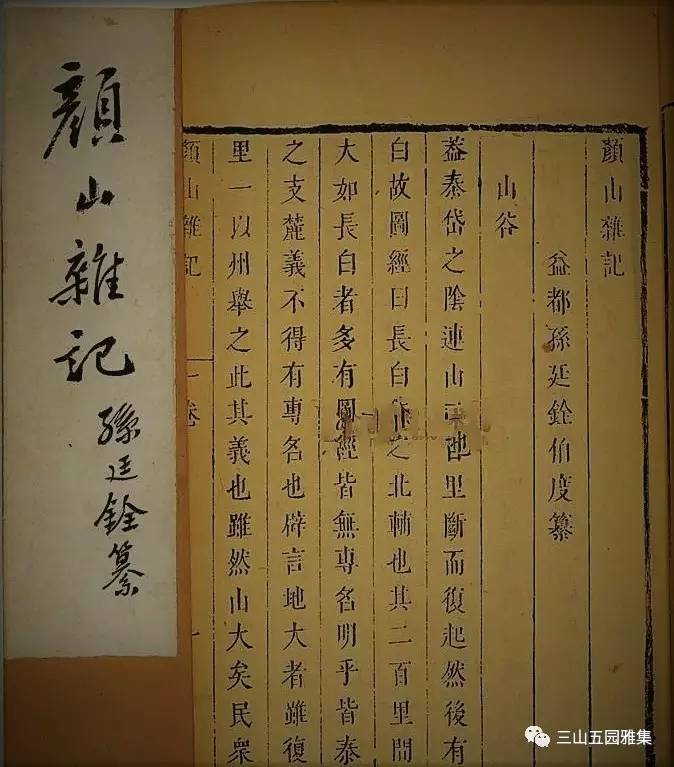 顏山雜記
孫廷銓纂
顏山雜記
益都孫廷銓伯度纂
山谷
葢泰岱之陰連山里斷而復起然後有
白故圖經曰長白之北輔也其二百里間
大如長白者多有圖經皆無專名明乎皆泰
之支麓義不得有專名也辟言地大者雖復
里一以州舉之此其義也雖然山大矣民衆
顏山雜記 一卷 一
三山五园雅集